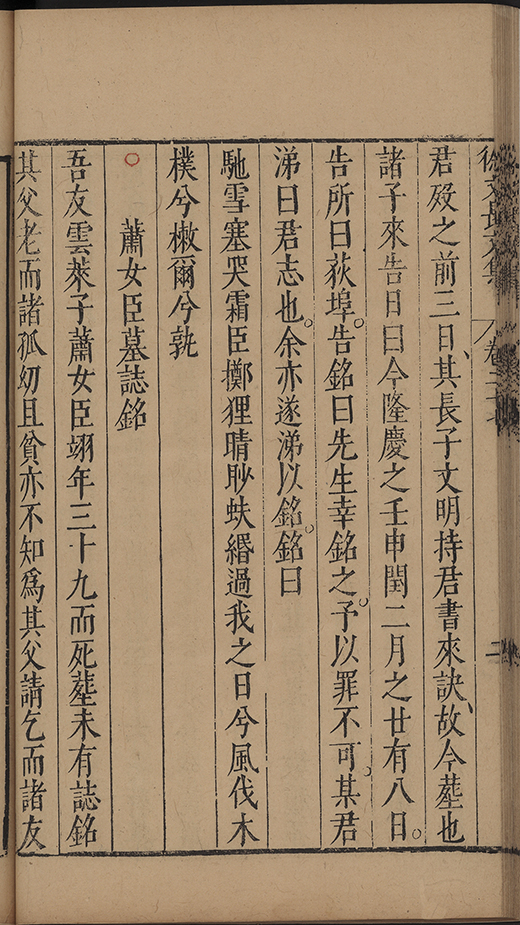 徐文長文集 卷二十七 二
君歿之前三日、其長子文明持君書來訣、故今塟也
諸子來告日曰今隆慶之壬申閏二月之廿有八日。
告所曰荻埠。告銘曰先生幸銘之。予以罪不可。某君
涕曰君志也。余亦遂涕以銘。銘曰
馳雪塞哭霜臣擲狸晴眇蚨緡過我之日兮風伐木
樸兮樕爾兮孰
○ 蕭女臣墓誌銘
吾友雲萊子蕭女臣翊年三十九而死塟未有誌銘
其父老而諸孤幼且貧亦不知爲其父請乞而諸友